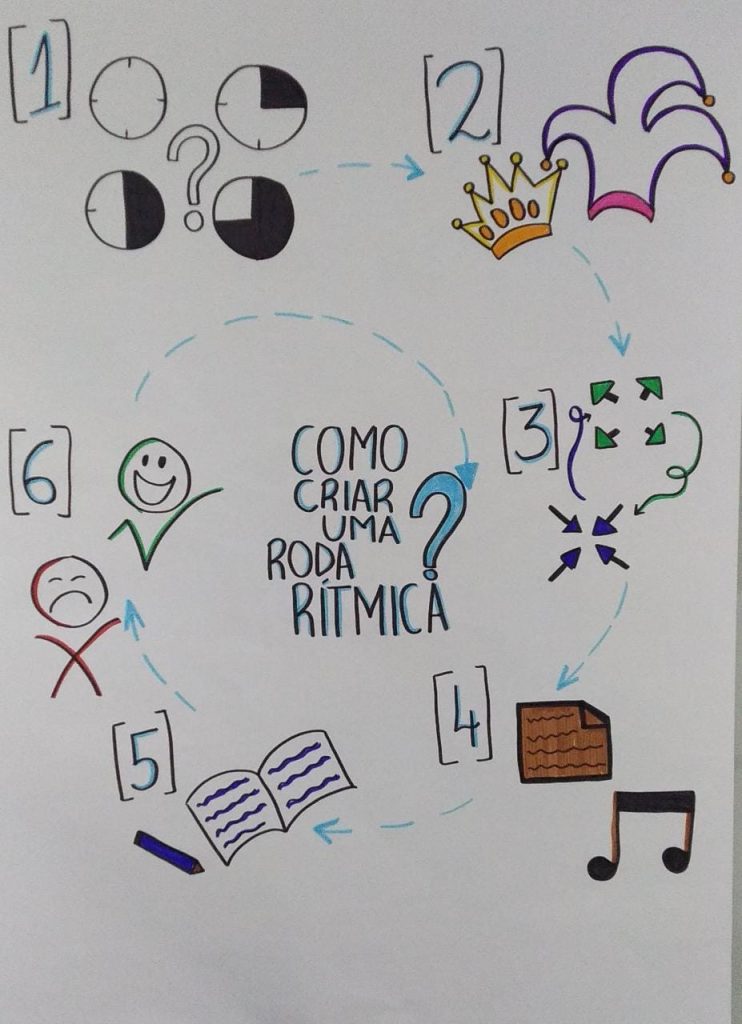 [1]
?
[2]
[3]
[6]
COMO
CRIAR
UMA
RODA
RÍTMICA
?
[4]
[5]